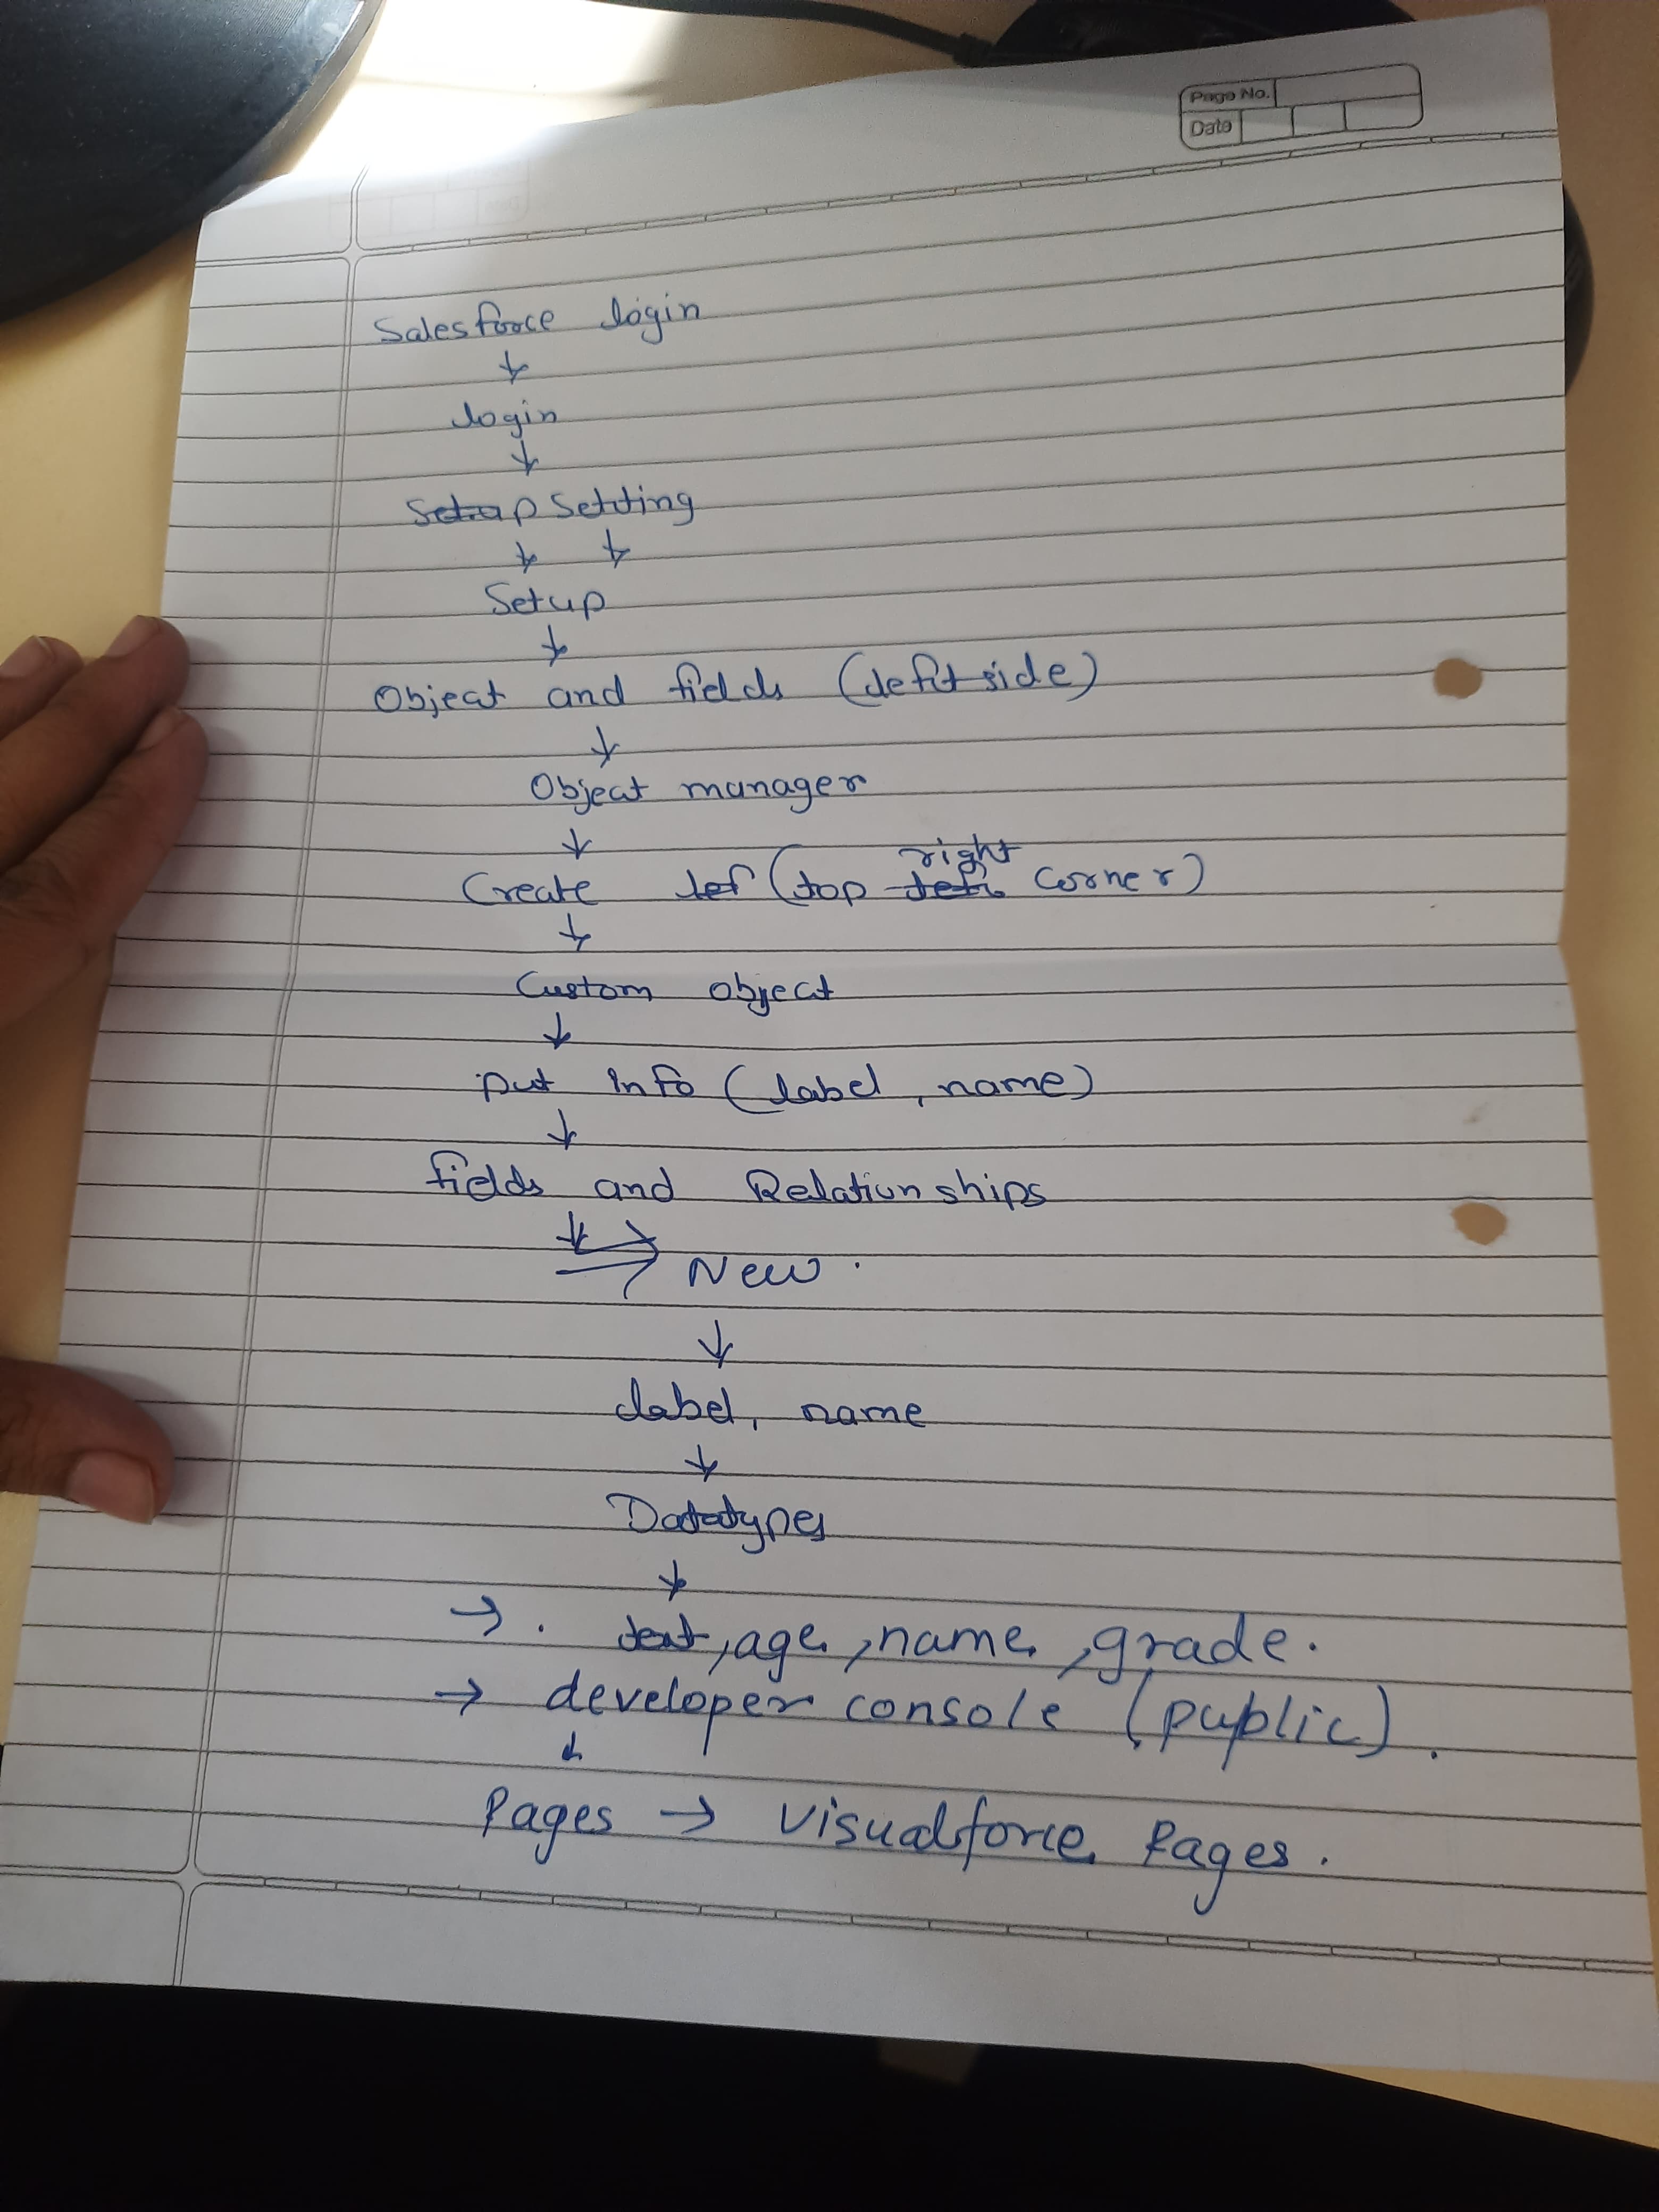 Page No.
Date
Salesforce login
↓
login
↓
Setup Setting
↓ ↓
Setup
↓
Object and fields (left side)
↓
Object manager
↓
right
Create lef (top left corner)
↓
Custom object
↓
put info (label, name)
↓
fields and Relationships
↓ → New.
↓
label, name
↓
Datatypes
↓
→ . text, age, name, grade.
→ developer console (public).
↓
Pages → visualforce Pages.